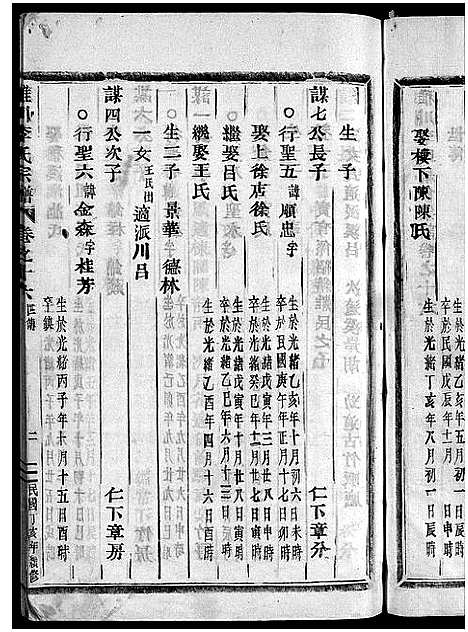 娶樓下陳陳氏
生於光緒丁亥年八月初一日辰時
卒於民國戊辰年十月初一日辰時
一生子
謀七公長子
仁下章房
○行聖五諱順忠字
生於光緒乙亥年十月初六日未時
卒於民國庚午年正月初六日寅時
娶上徐店徐氏
生於光緒戊寅年三月廿八日申時
卒於光緒癸巳年十二月廿七日寅時
○繼娶呂氏
生於光緒戊寅年十一月廿七日寅時
一繼娶王氏
生於光緒乙酉年四月十六日酉時
○生二子 景華 德林
一女王氏出適派川呂
謀四公次子
仁下章房
○行聖六諱金森字桂芳
生於光緒丙子年十月十五日酉時
李氏宗譜
卷之十六
民國丁亥年續修